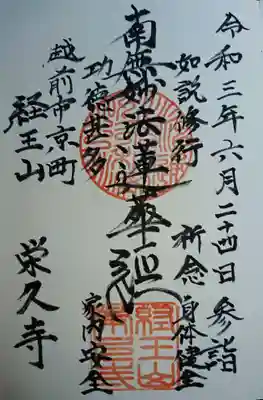 令和三年六月二十四日 参詣
如説修行 祈念 身体健全
南無妙法蓮華経
功徳甚多 家内安全
越前市京町
経王山 栄久寺